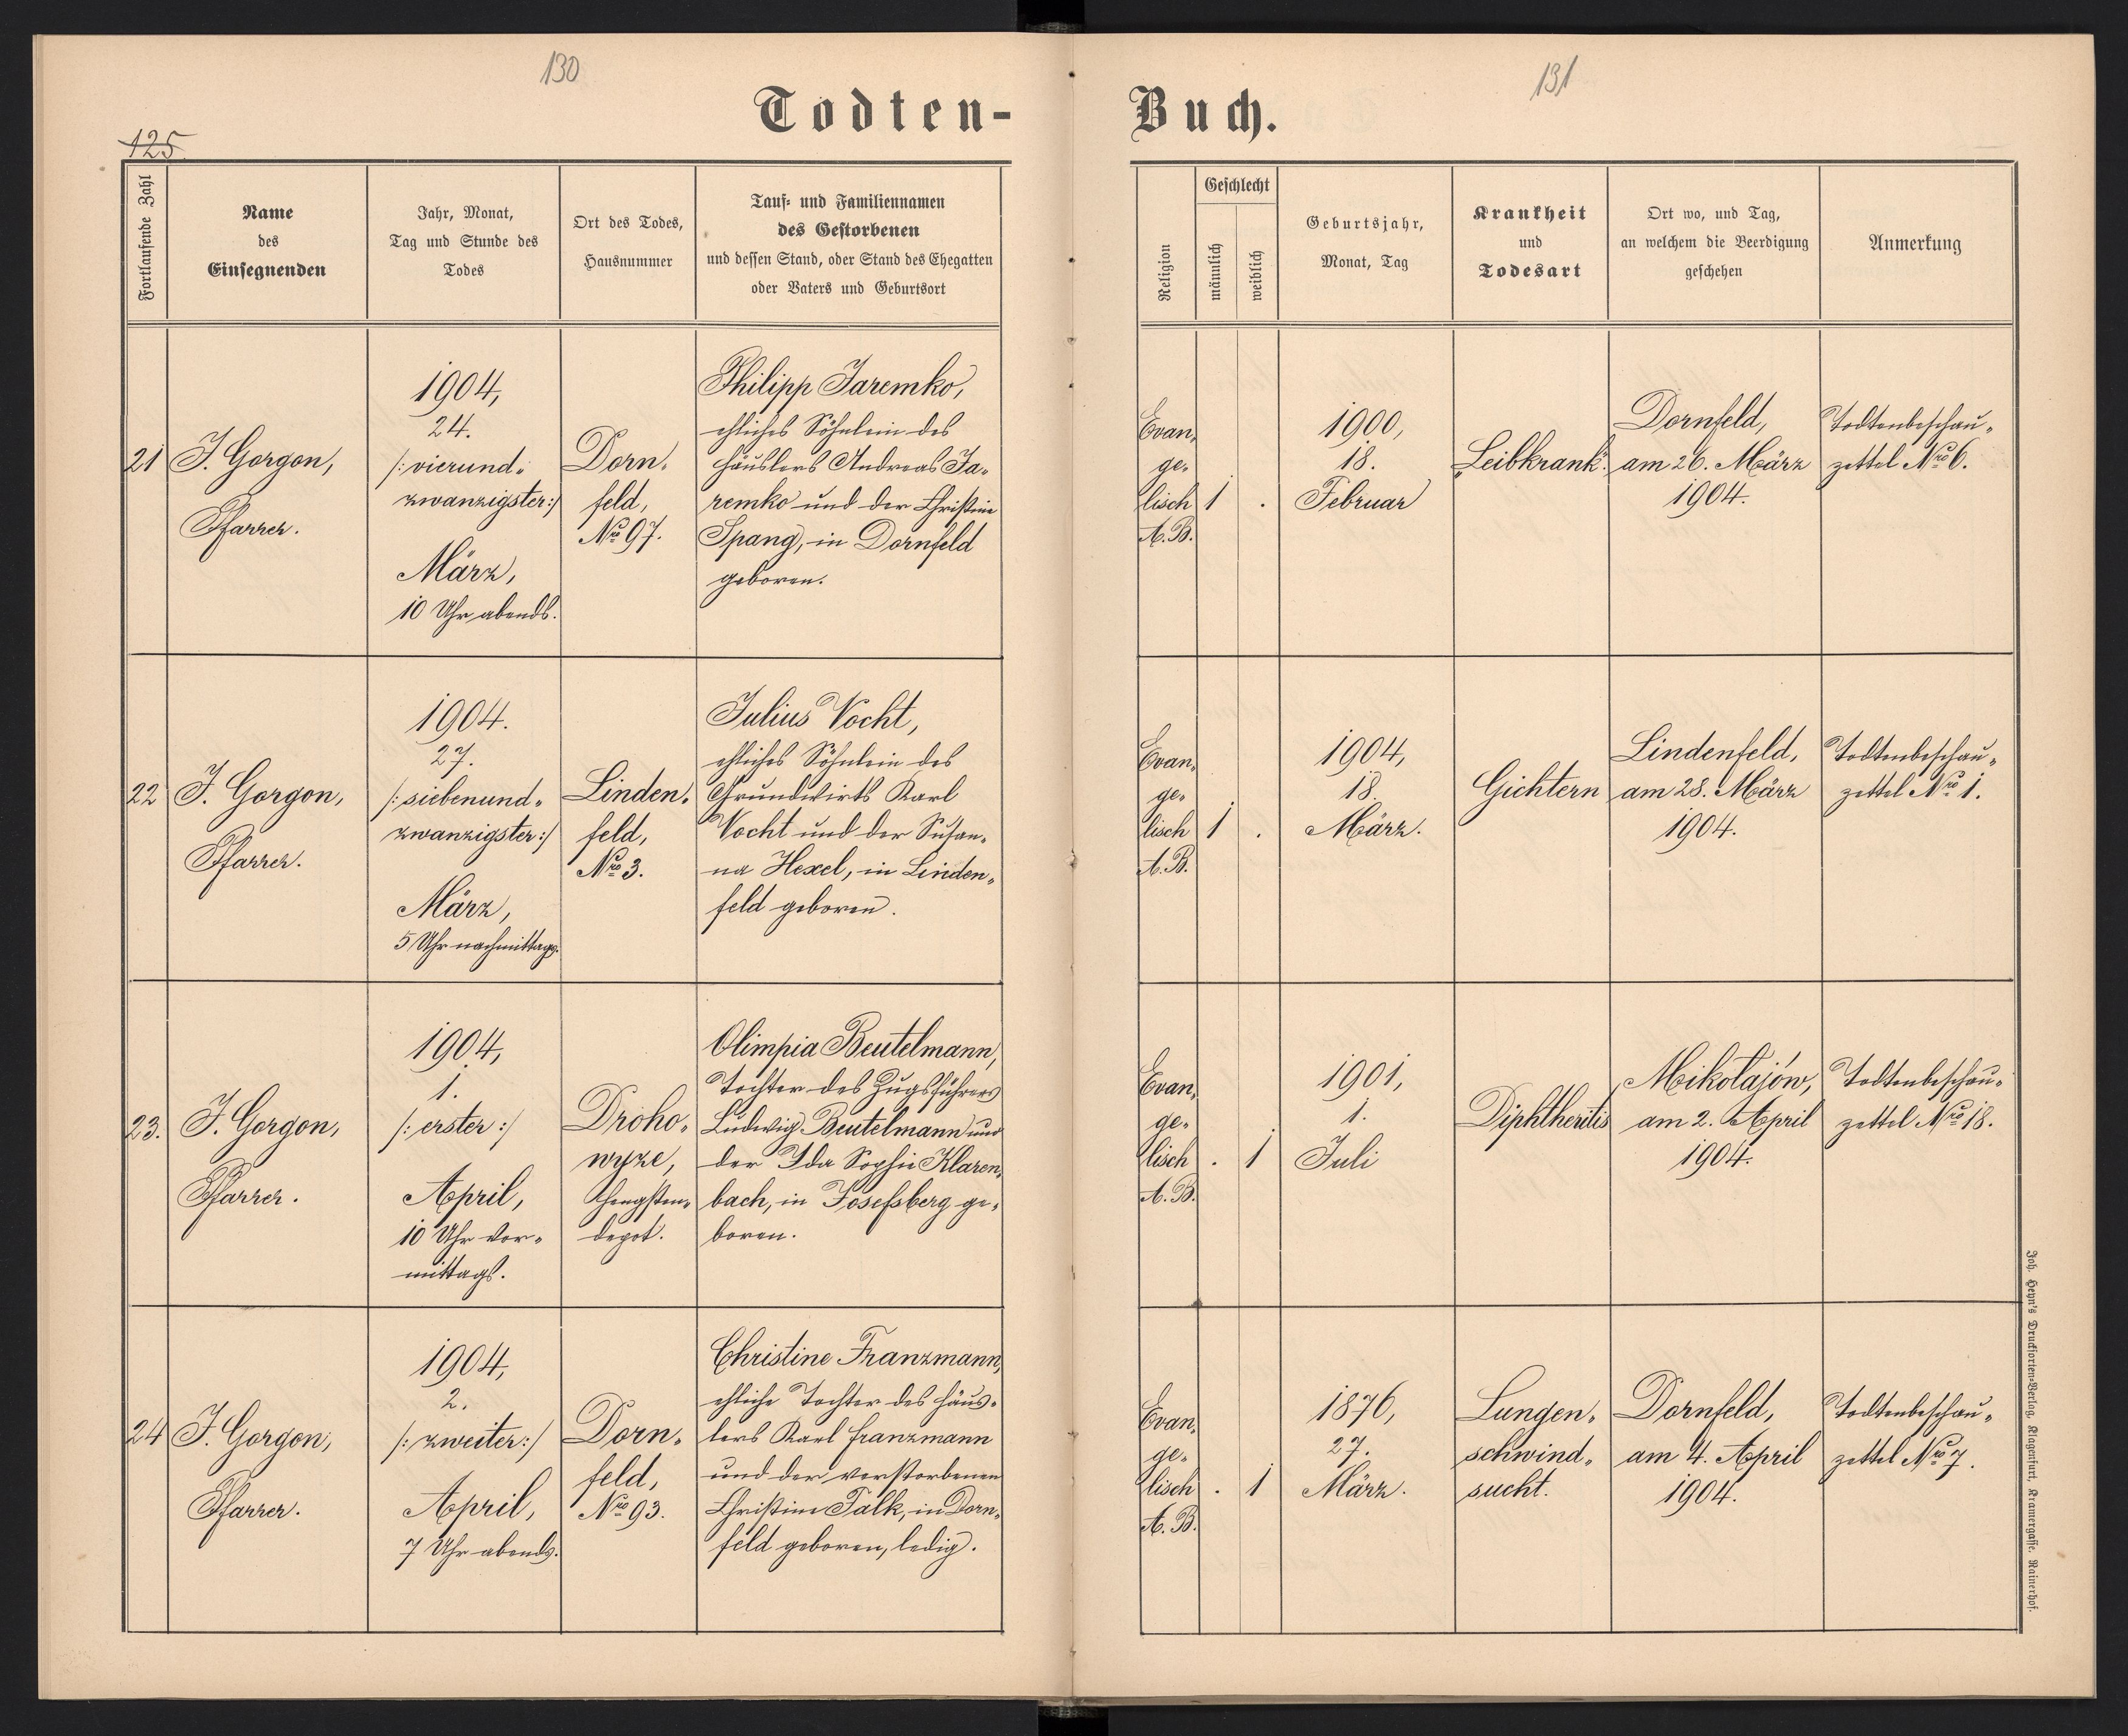 130
131
Todten-
Buch.
125.
Fortlaufende Zahl
Name
des
Einsegnenden
Jahr, Monat,
Tag und Stunde des
Todes
Ort des Todes,
Hausnummer
Tauf- und Familiennamen
des Gestorbenen
und dessen Stand, oder Stand des Ehegatten
oder Vaters und Geburtsort
Religion
Geschlecht
männlich
weiblich
Geburtsjahr,
Monat, Tag
Krankheit
und
Todesart
Ort wo, und Tag,
an welchem die Beerdigung
geschehen
Anmerkung
21
J. Gorgon,
Pfarrer.
1904,
24.
/: vierund-
zwanzigster :/
März,
10 Uhr abends.
Dorn-
feld,
Nro 97.
Philipp Jaremko,
ehliches Söhnlein des
Häuslers Andreas Ja-
remko und der Christine
Spang, in Dornfeld
geboren.
Evan-
ge-
lisch
A.B.
1
.
1900,
18.
Februar
"Leibkrank".
Dornfeld,
am 26. März
1904.
Todtenbeschau-
zettel Nro 6.
22
J. Gorgon,
Pfarrer.
1904.
27.
/: siebenund-
zwanzigster :/
März,
5 Uhr nachmittags.
Linden-
feld,
Nro 3.
Julius Vocht,
ehliches Söhnlein des
Grundwirts Karl
Vocht und der Susan-
na Hexel, in Linden-
feld geboren.
Evan-
ge-
lisch
A.B.
1
.
1904,
18.
März.
Gichtern
Lindenfeld,
am 28. März
1904.
Todtenbeschau-
zettel Nro 1.
23.
J. Gorgon,
Pfarrer.
1904,
1.
/: erster :/
April,
10 Uhr vor-
mittags.
Droho-
wyze,
Hengsten-
depot.
Olimpia Beutelmann,
Tochter des Zugsführers
Ludwig Beutelmann und
der Ida Sophie Klaren-
bach, in Josefsberg ge-
boren.
Evan-
ge-
lisch
A.B.
.
1
1901,
1.
Juli
Diphtheritis
Mikołajów,
am 2. April
1904.
Todtenbeschau-
zettel Nro 18.
24
J. Gorgon,
Pfarrer.
1904,
2.
/: zweiter :/
April,
7 Uhr abends.
Dorn-
feld,
Nro 93.
Christine Franzmann,
ehliche Tochter des Häus-
lers Karl Franzmann
und der verstorbenen
Christine Falk, in Dorn-
feld geboren, ledig.
Evan-
ge-
lisch
A.B.
.
1
1876,
27.
März.
Lungen-
schwind-
sucht.
Dornfeld,
am 4. April
1904.
Todtenbeschau-
zettel Nro 7.
Joh. Heyn's Drucksorten-Verlag, Klagenfurt, Kramergasse, Rainerhof.